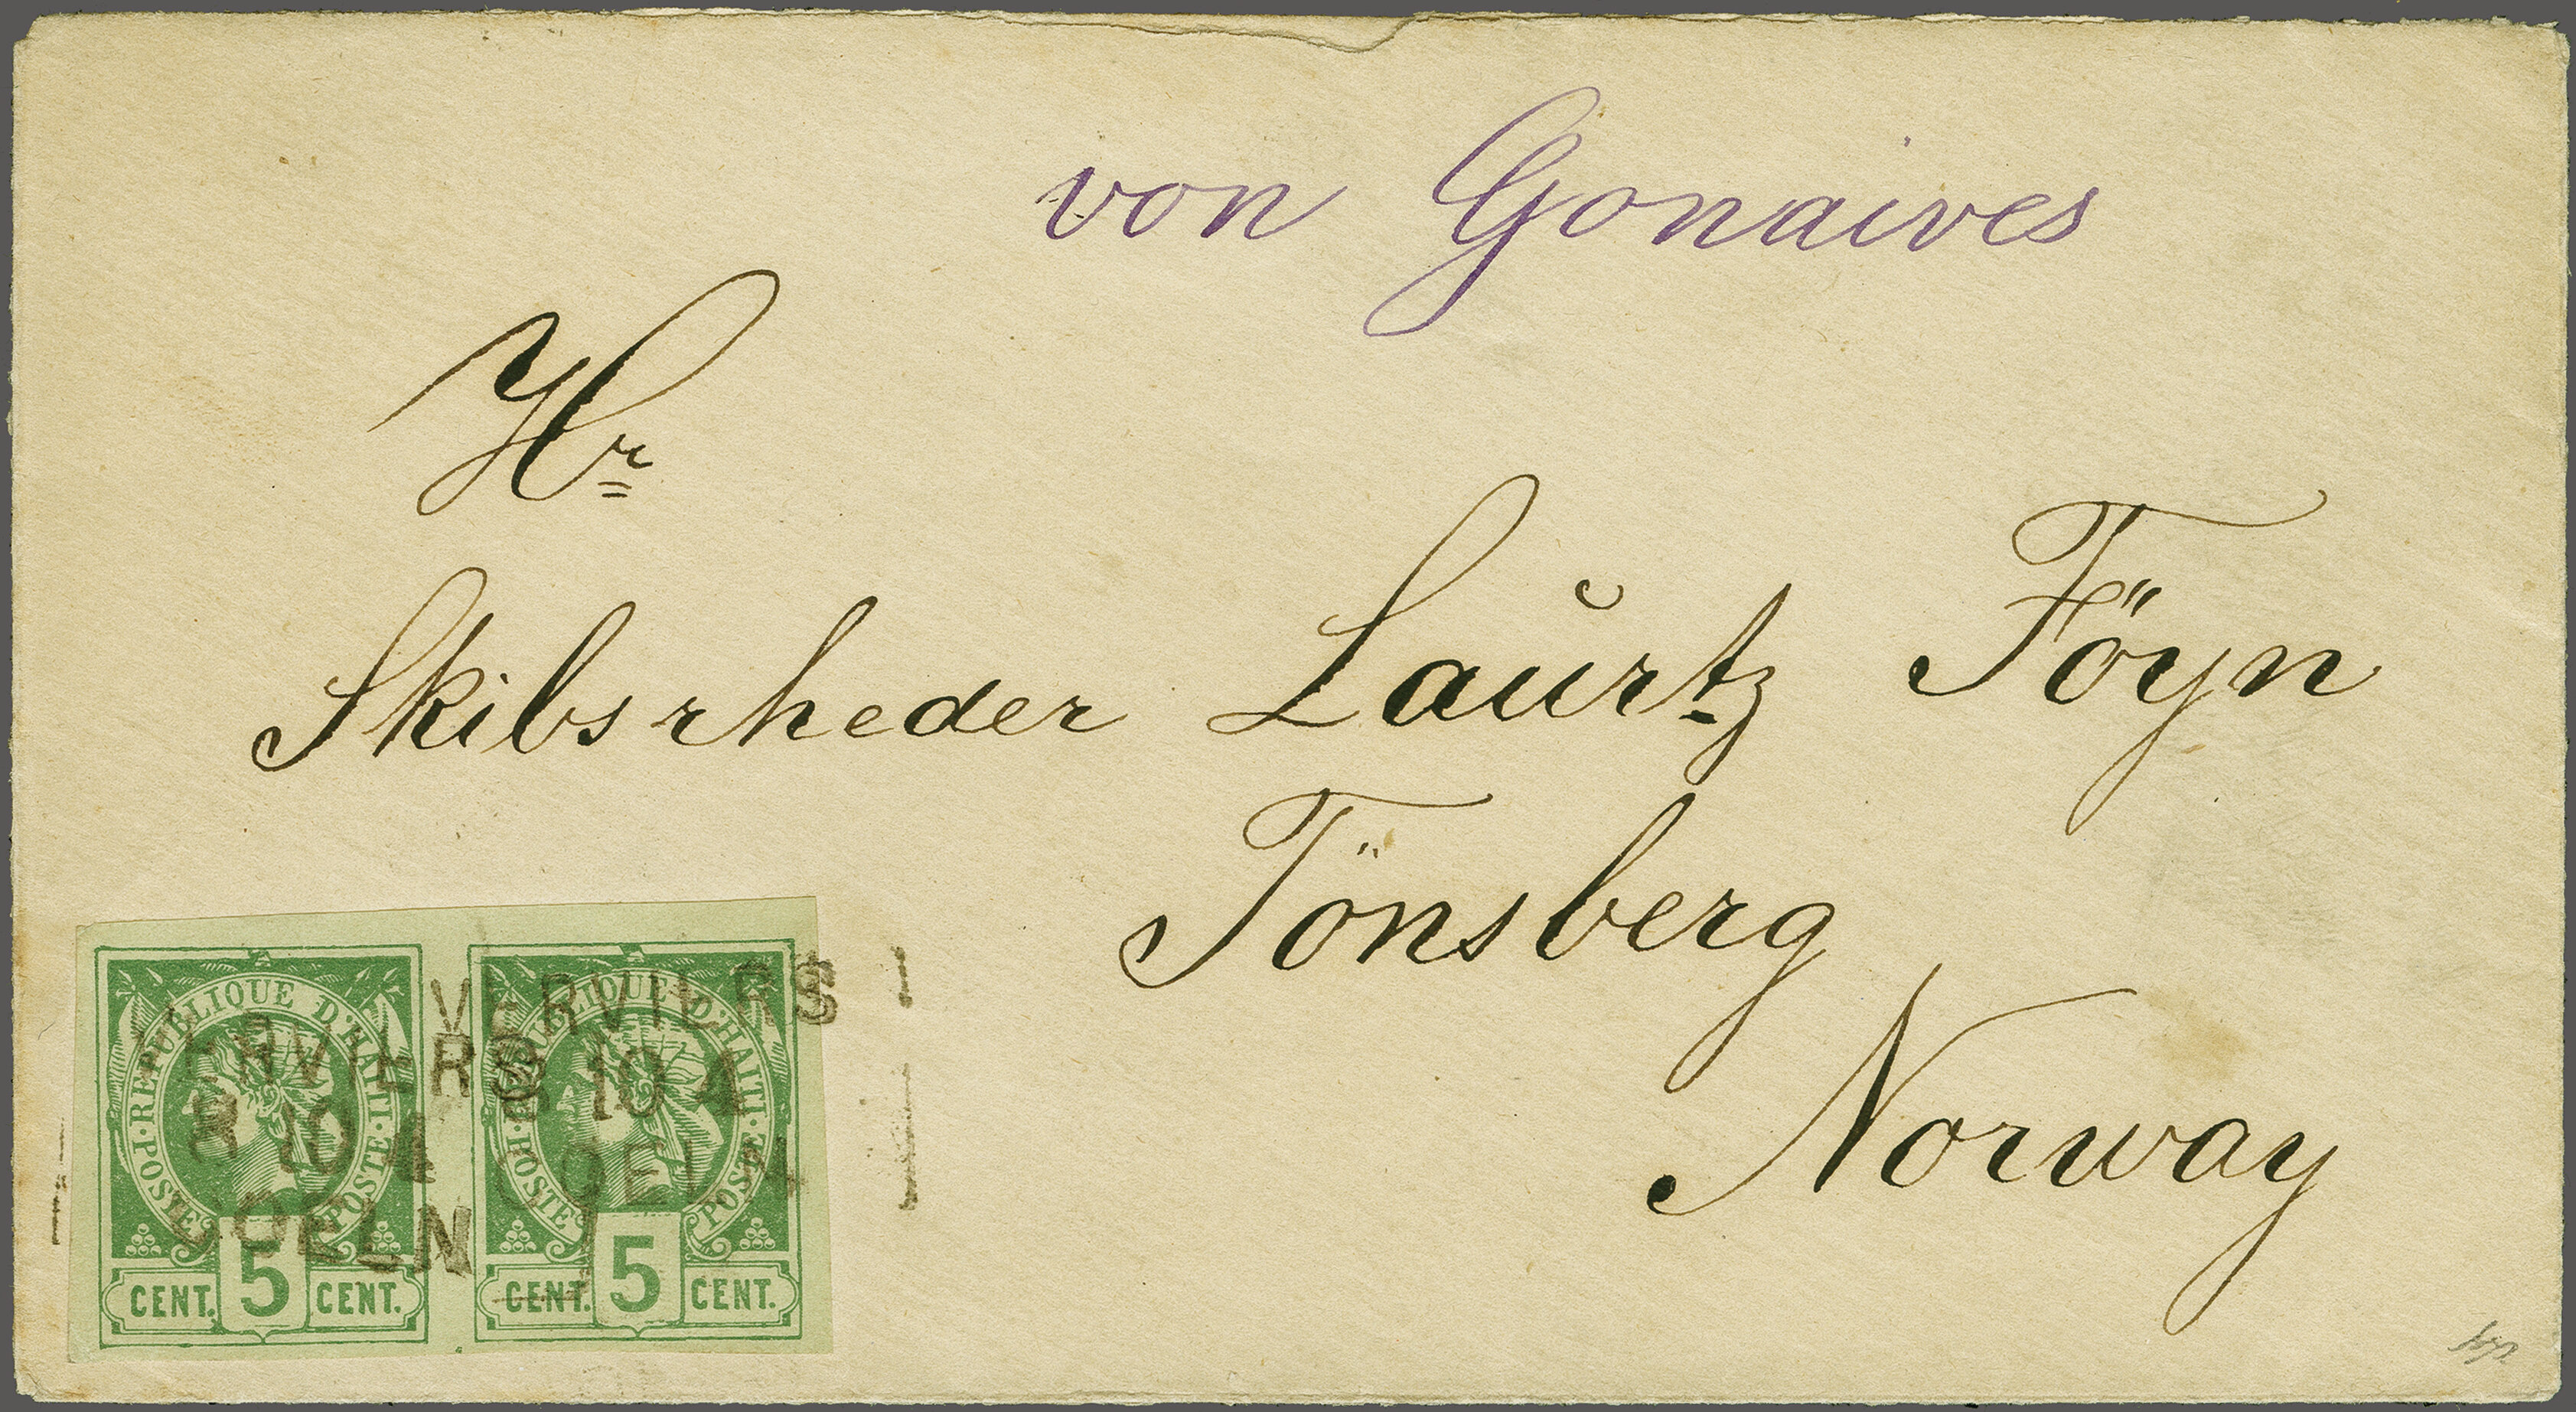 von Gonaives
Hr
Skibsrheder Laurtz Föyn
Tönsberg
Norway
POSTE · REPUBLIQUE D'HAITI · POSTE
CENT. 5 CENT.
POSTE · REPUBLIQUE D'HAITI · POSTE
CENT. 5 CENT.
VERVIERS
8 10 4
COELN
VERVIERS
8 10 4
COELN